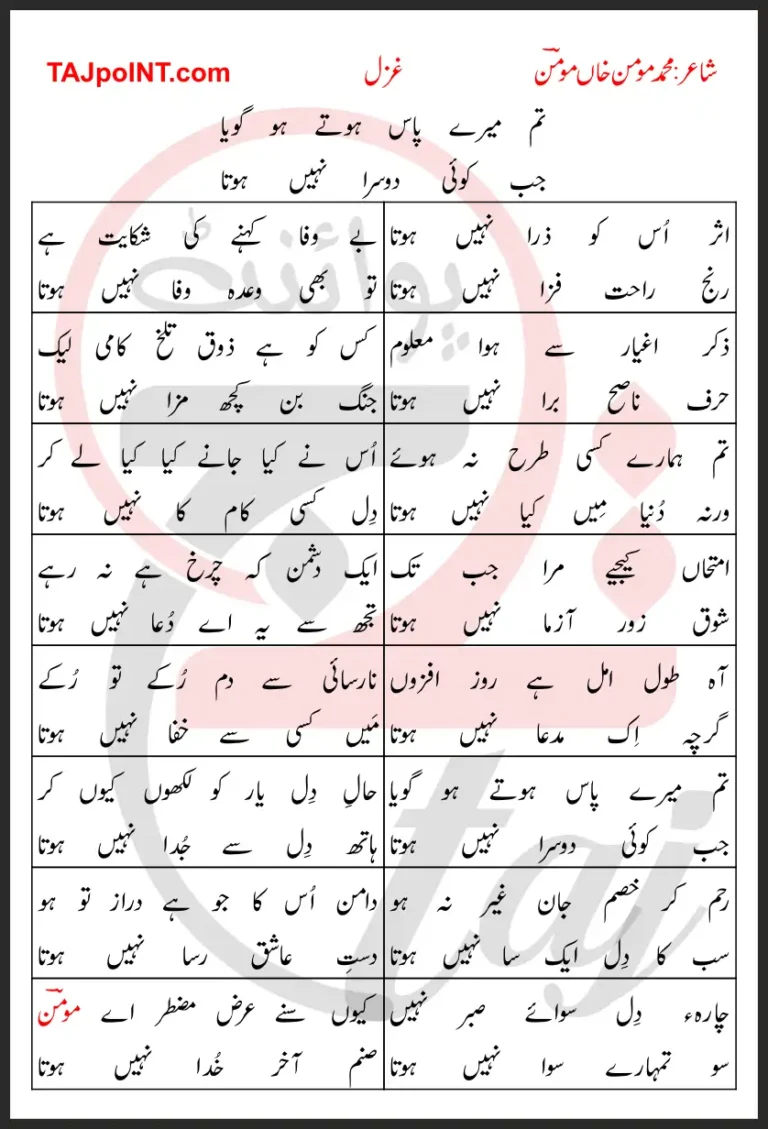 شاعر: محمد مومن خاں مومنؔ
غزل
TAJpoINT.com
تم میرے پاس ہوتے ہو گویا
جب کوئی دوسرا نہیں ہوتا
اثر اُس کو ذرا نہیں ہوتا
رنج راحت فزا نہیں ہوتا
بے وفا کہنے کی شکایت ہے
تو بھی وعدہ وفا نہیں ہوتا
ذکر اغیار سے ہوا معلوم
حرف ناصح برا نہیں ہوتا
کس کو ہے ذوق تلخ کامی لیک
جنگ بن کچھ مزا نہیں ہوتا
تم ہمارے کسی طرح نہ ہوئے
ورنہ دُنیا مِیں کیا نہیں ہوتا
اُس نے کیا جانے کیا کیا لے کر
دِل کسی کام کا نہیں ہوتا
امتحاں کیجیے مرا جب تک
شوق زور آزما نہیں ہوتا
ایک دشمن کہ چرخ ہے نہ رہے
تجھ سے یہ اے دُعا نہیں ہوتا
آہ طول امل ہے روز افزوں
گرچہ اِک مدعا نہیں ہوتا
نارسائی سے دم رُکے تو رُکے
مَیں کسی سے خفا نہیں ہوتا
تم میرے پاس ہوتے ہو گویا
جب کوئی دوسرا نہیں ہوتا
حالِ دِل یار کو لکھوں کیوں کر
ہاتھ دِل سے جُدا نہیں ہوتا
رحم کر خصم جان غیر نہ ہو
سب کا دِل ایک سا نہیں ہوتا
دامن اُس کا جو ہے دراز تو ہو
دستِ عاشق رسا نہیں ہوتا
چارہء دِل سوائے صبر نہیں
سو تمہارے سوا نہیں ہوتا
کیوں سنے عرض مضطر اے مومنؔ
صنم آخر خُدا نہیں ہوتا
پوائنٹ
تاج
taj